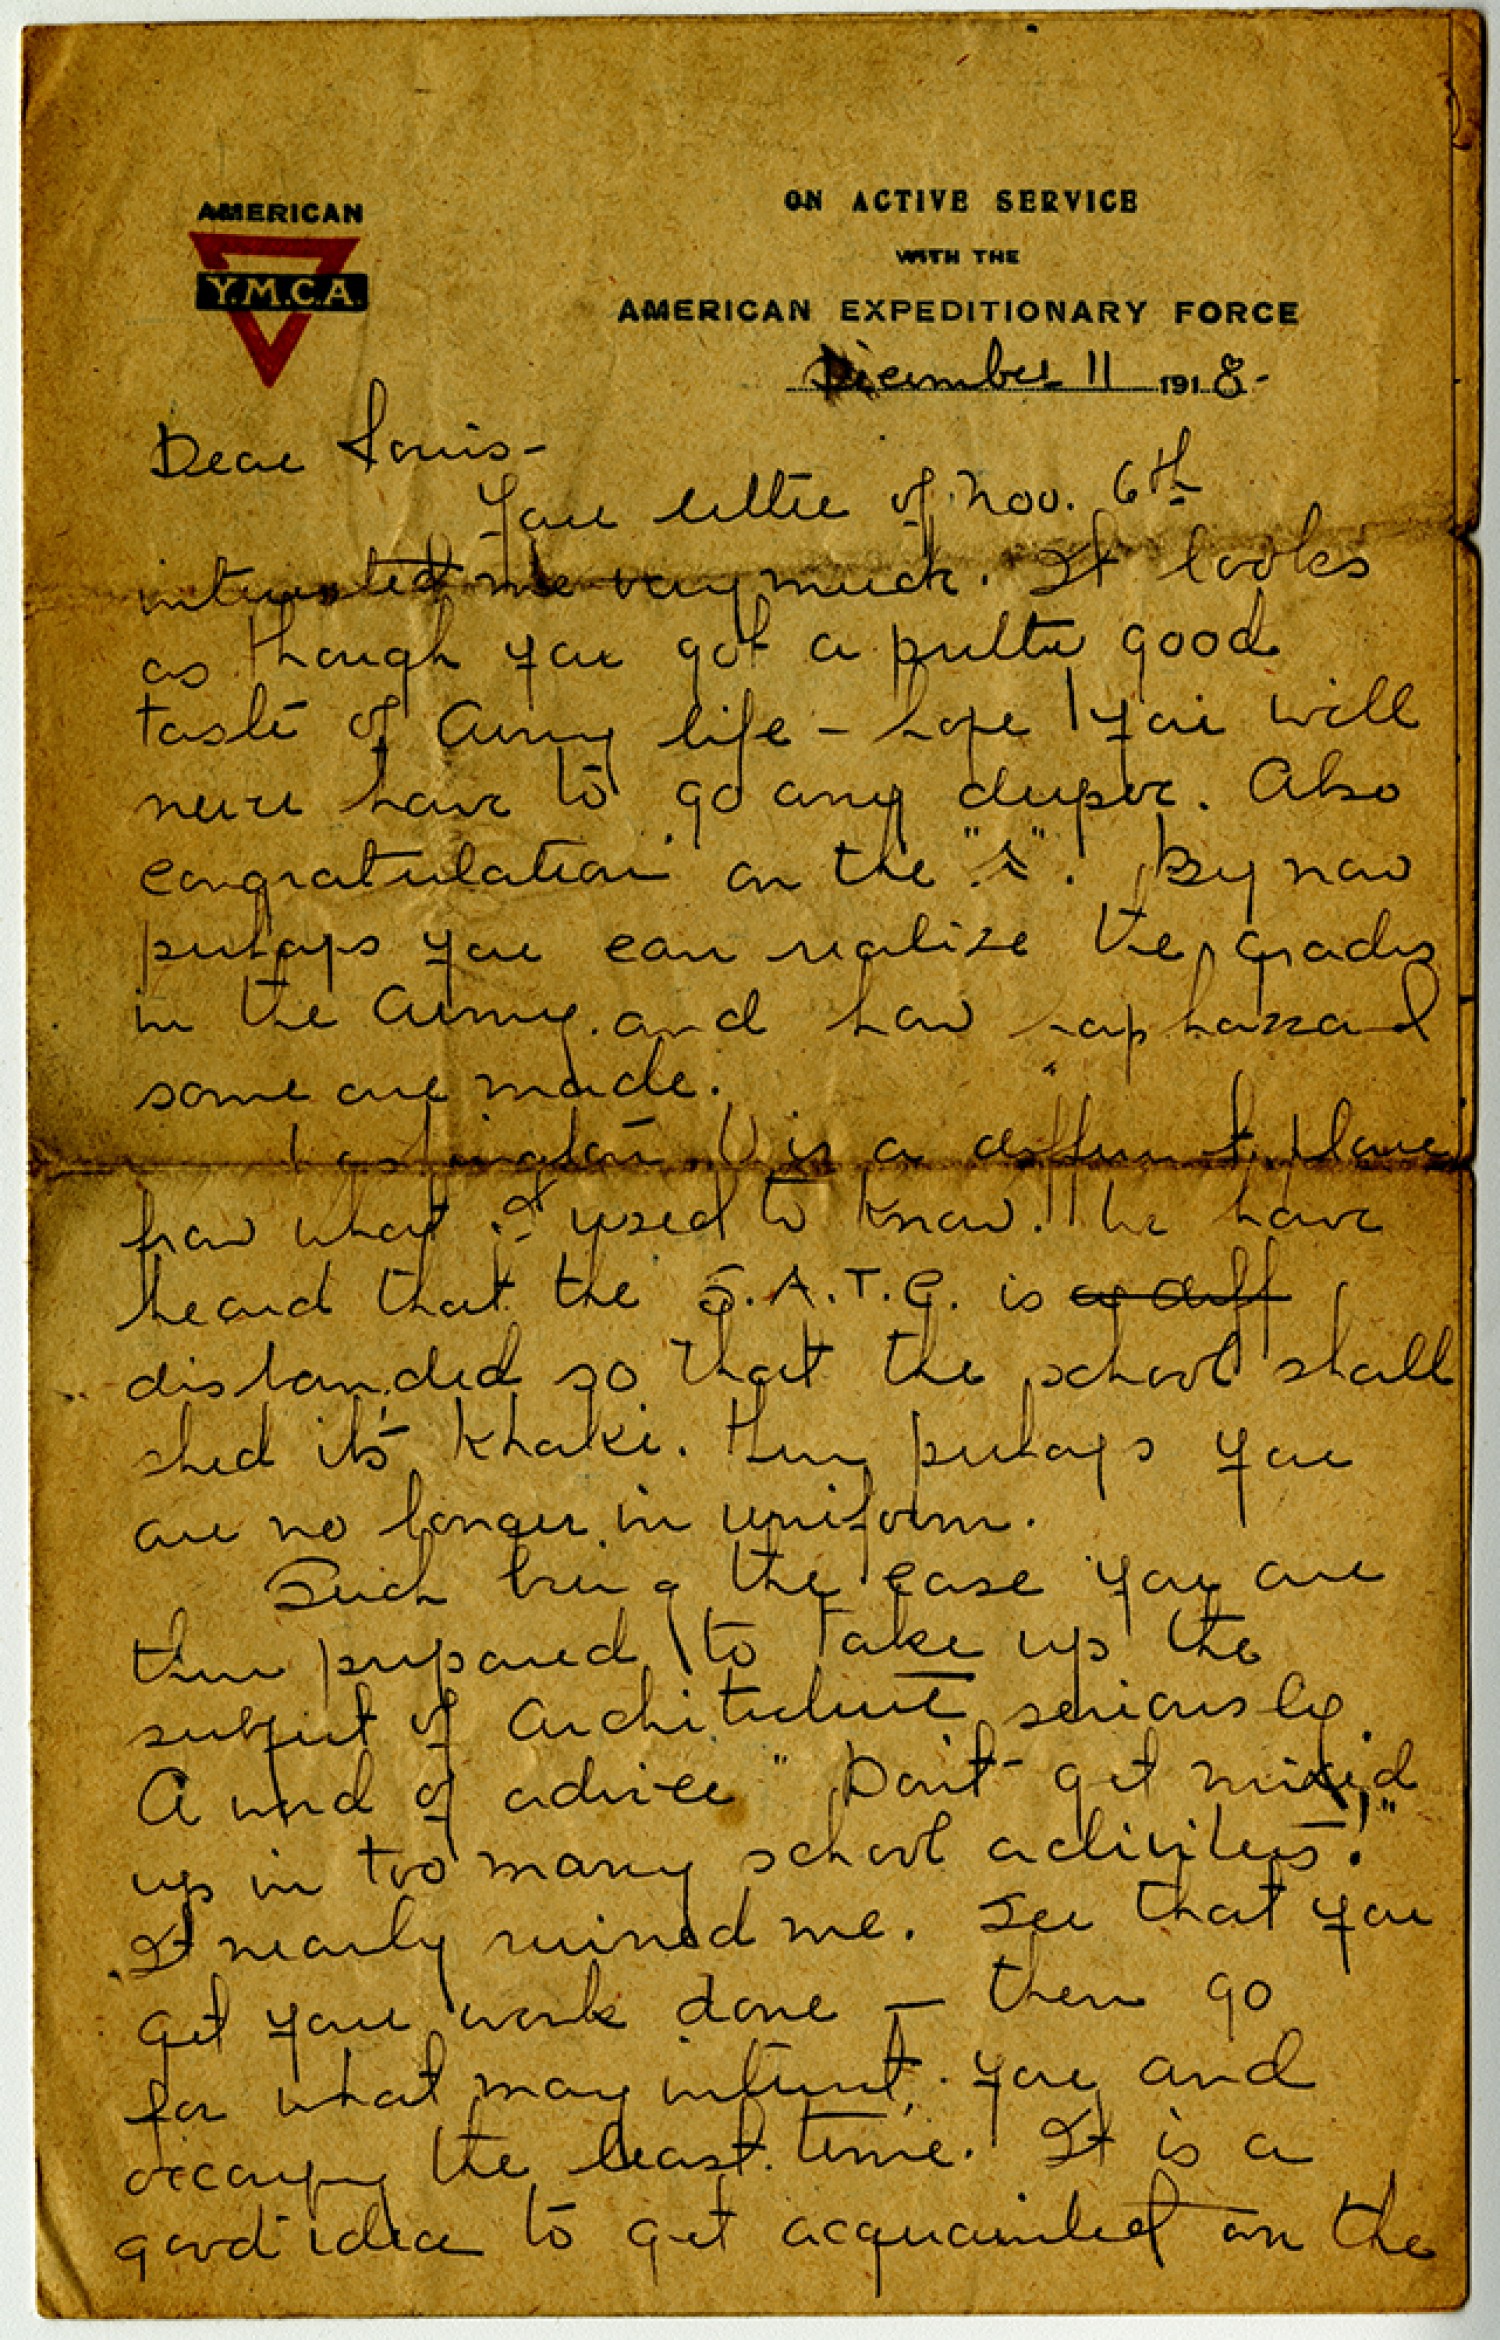 AMERICAN
Y.M.C.A.
ON ACTIVE SERVICE
WITH THE
AMERICAN EXPEDITIONARY FORCE
December 11 1918-
Dear Louis-
Your letter of Nov. 6th
interested me very much. It looks
as though you got a pretty good
taste of Army life - hope you will
never have to go any deeper. Also
congratulation on the "s". By now
perhaps you can realize the grades
in the Army and how haphazzard
some are made.
Washington U is a different place
from what I used to know. We have
heard that the S.A.T.C. is a diff
disbanded so that the school shall
shed its khaki. Then perhaps you
are no longer in uniform.
Such being the case you are
then prepared to take up the
subject of Architecture seriously.
A word of advice "Don't get mixed
up in too many school activities."
It nearly ruined me. See that you
get your work done - then go
for what may interest you and
occupy the least time. It is a
good idea to get acquainted on the